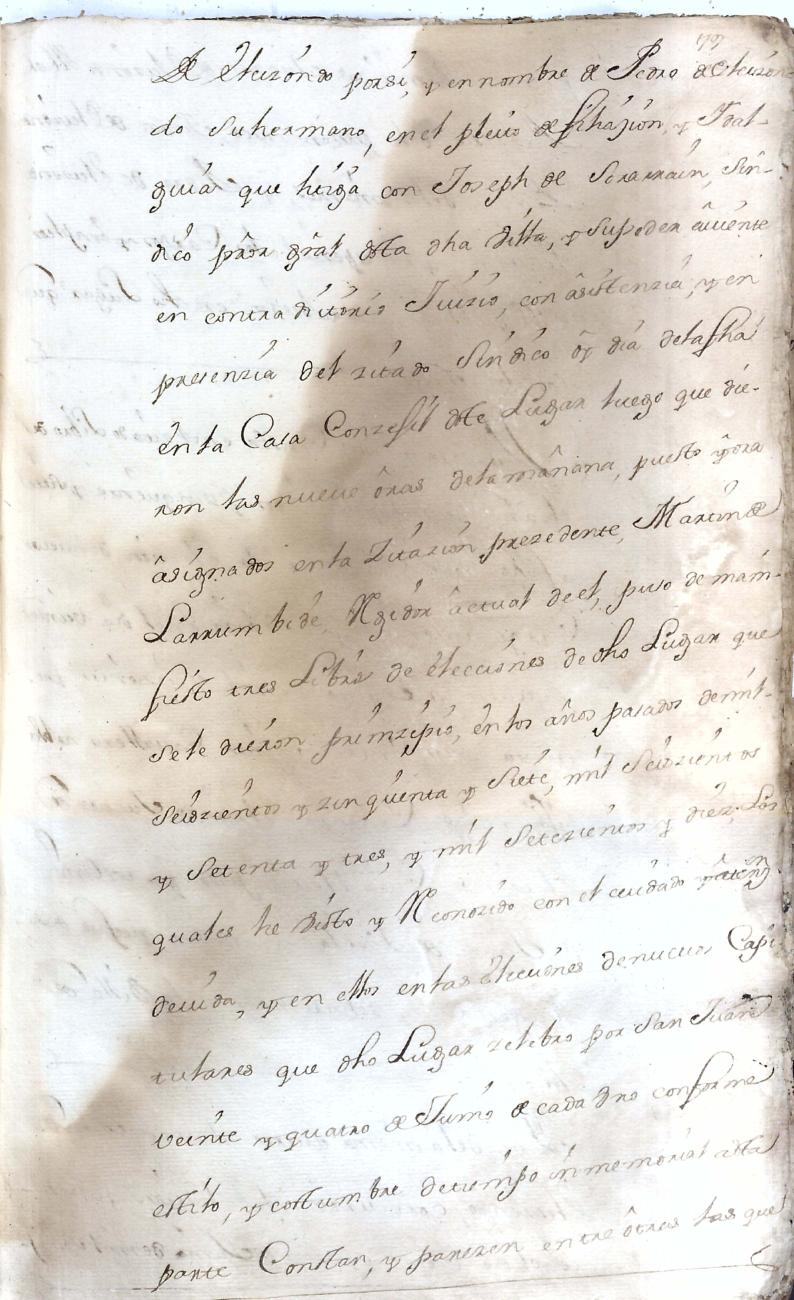 79
de Elizondo por sí, y en nombre de Pedro de Elizon
do su hermano, en el pleito de filiazion, y Idal-
guia que litiga con Joseph de Sorarrain, Sin-
dico prõr grãl desta dha Villa, y su poder auiente
en contraditorio Juizio, con asistenzia, y en
presenzia del zitado Sindico oy dia de la fha
en la Casa Conzejil deste Lugar luego que die-
ron las nueue oras de la mañana, puesto y ora
asignados en la Zitazion prezedente, Martin de
Larrumbide Rexidor actual de el, puso de mani-
fiesto tres Libros de elecciones de dho Lugar que
se le dieron prinzipio, en los años pasados de mil-
seiszientos y zinquenta y siete, mil seiszientos
y setenta y tres, y mil setezientos y diez; Los
quales he visto y Reconozido con el cuidado y aten.on
deuida, y en ellos en las elecciones de nueuos Capi
tulares que dho Lugar zelebro por San Juan
veinte y quatro de Junio de cada año conforme
estilo, y costumbre de tiempo inmemorial a esta
parte Constan, y parezen entre otras las que